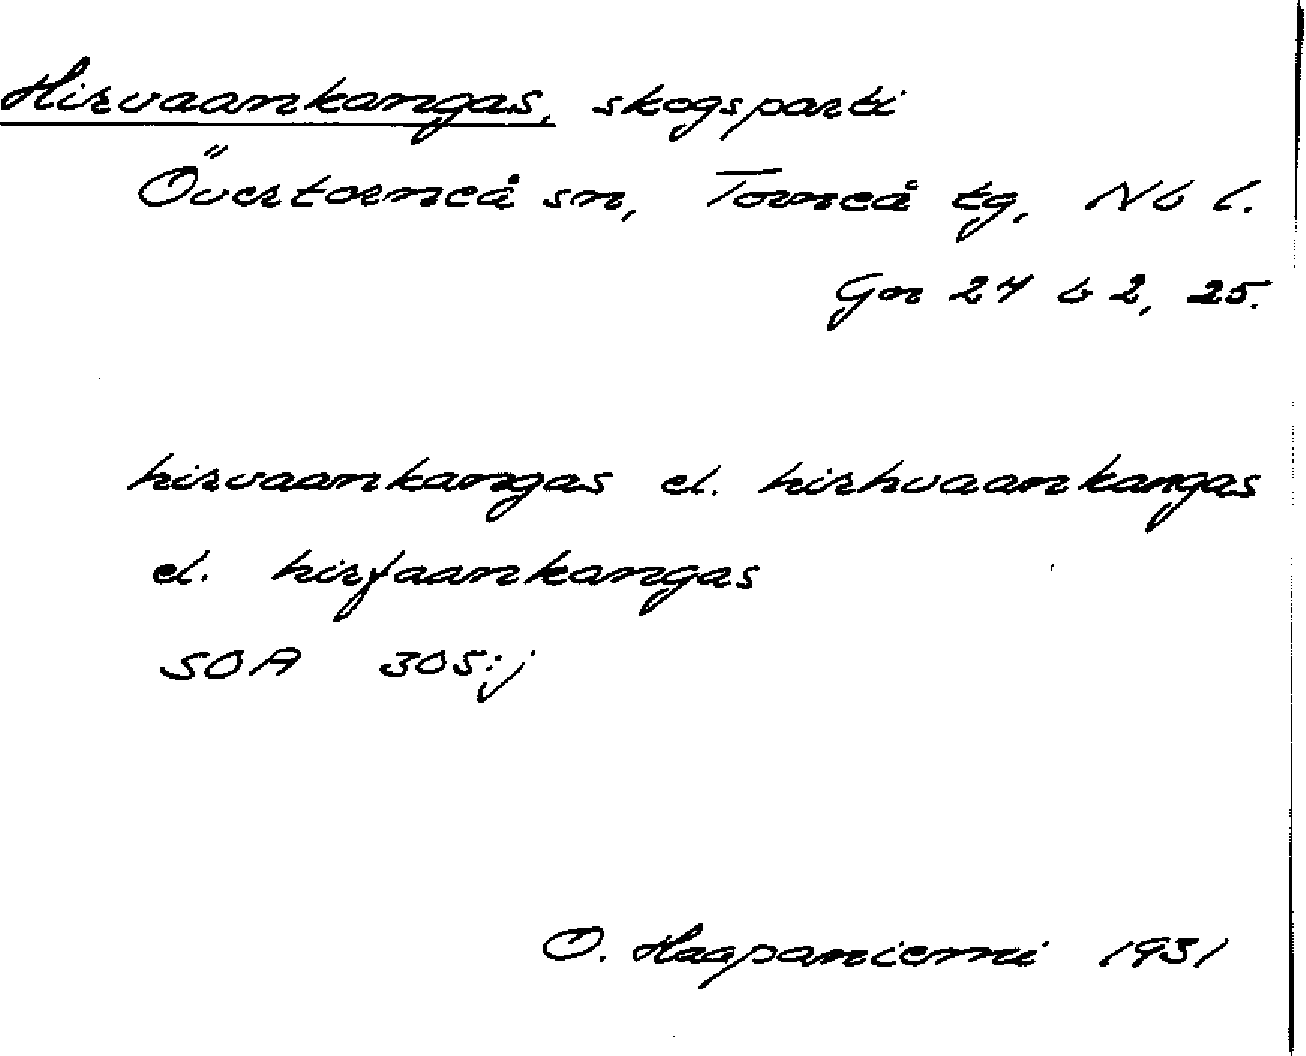 Hirvaankangas, skogsparti
Övertorneå sn, Torneå tg, Nb l.
Gn 24 b 2, 25.
hirvaankangas el. hirhvaankangas
el. hirfaankangas
SOA 305:j
O. Haapaniemi 1931